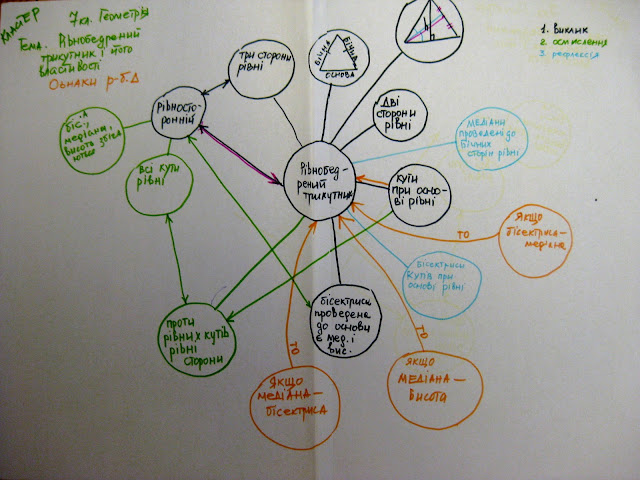 КЛАЙТЕР
7 кл. Геометрія
Тема. Рівнобедрений
трикутник і його
властивості
Ознаки р-б. Δ
1. виклик
2. осмислення
3. рефлексія
три сторони
рівні
бічна
бічна
основа
Рівносто-
ронній
біс.,
медіана,
висота збіга
ються
всі кути
рівні
дві
сторони
рівні
медіани
проведені до
бічних
сторін рівні
Рівнобед-
рений
трикутник
кути
при осно-
ві рівні
Якщо
бісектриса-
медіана
то
бісектриси
кутів при
основі рівні
проти
рівних кутів
рівні
сторони
бісектриса
проведена
до основи
є мед. і
вис.
то
то
Якщо
медіана —
бісектриса
Якщо
медіана —
висота